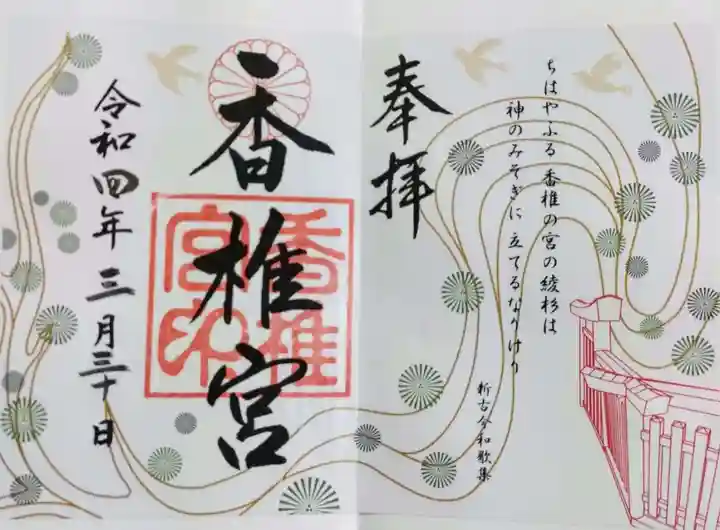 ちはやふる 香椎の宮の綾杉は
神のみそぎに 立てるなりけり
新古今和歌集
奉拝
香椎宮
香椎宮印
令和四年三月三十日